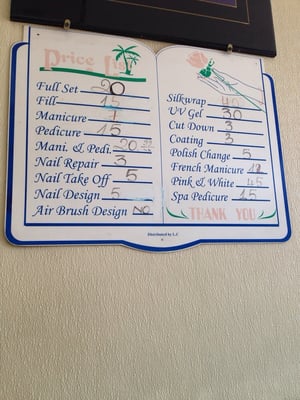 Price List
Full Set 20
Fill 15
Manicure 7
Pedicure 15
Mani. & Pedi. 20
Nail Repair 3
Nail Take Off 5
Nail Design 5
Air Brush Design NO
Silkwrap 40
UV Gel 30
Cut Down 3
Coating 3
Polish Change 5
French Manicure 12
Pink & White 45
Spa Pedicure 15
THANK YOU
Distributed by L.C